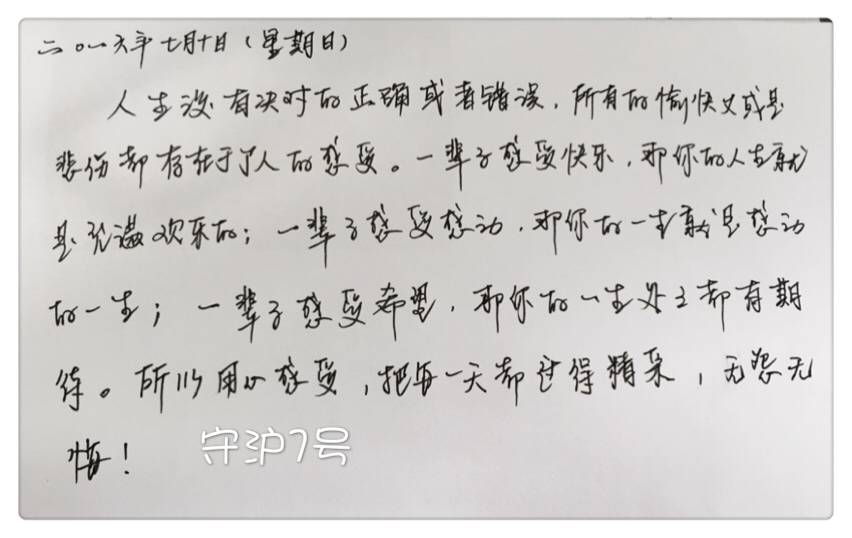 二〇一六年七月十日(星期日)
人生没有决对的正确或者错误,所有的愉快又或是
悲伤都存在于了人的感受。一辈子感受快乐,那你的人生就
是充满欢乐的;一辈子感受感动,那你的一生就是感动
的一生;一辈子感受希望,那你的一生处处都有期
待。所以用心感受,把每一天都过得精采,无怨无
悔!
守沪7号